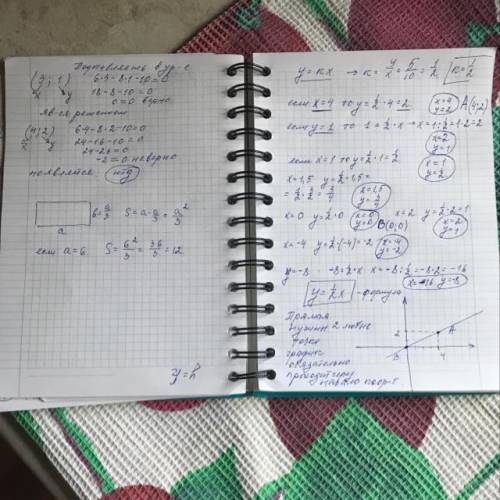 Подставлять в ур-е
(3; 1) 6·3-8·1-10=0
x y 18-8-10=0
0=0 верно
Яв-ся решением
(4; 2) 6·4-8·2-10=0
x y 24-16-10=0
24-26=0
-2=0 неверно
b=a/3 S=a·a/3=a²/3
a
если a=6 S=6²/3=36/3=12
y=k
y=kx → k=y/x=5/10=1/2 k=1/2
если x=4 то y=1/2·4=2 x=4 y=2 A(4;2)
если y=1 то 1=1/2·x → x=1:1/2=1·2=2
x=2 y=1
если x=1 то y=1/2·1=1/2 x=1 y=1/2
x=1,5 y=1/2·1,5=
=1/2·3/2=3/4 x=1,5 y=3/4
x=0 y=1/2·0 x=0 y=0 x=2 y=1/2·2=1
B(0;0) x=2 y=1
x=-4 y=1/2·(-4)=-2 x=-4 y=-2
y=-8 -8=1/2·x x=-8:1/2=-8·2=-16
x=-16 y=-8
y=1/2x - формула
Прямая
нужны 2 любые
точки
график
обязательно
проходит через
начало коорд
2 A
B 4